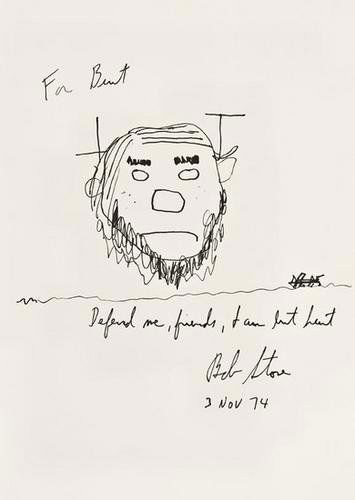 For Burt
Defend me, friends, I am but hurt
Bob Stone
3 NOV 74